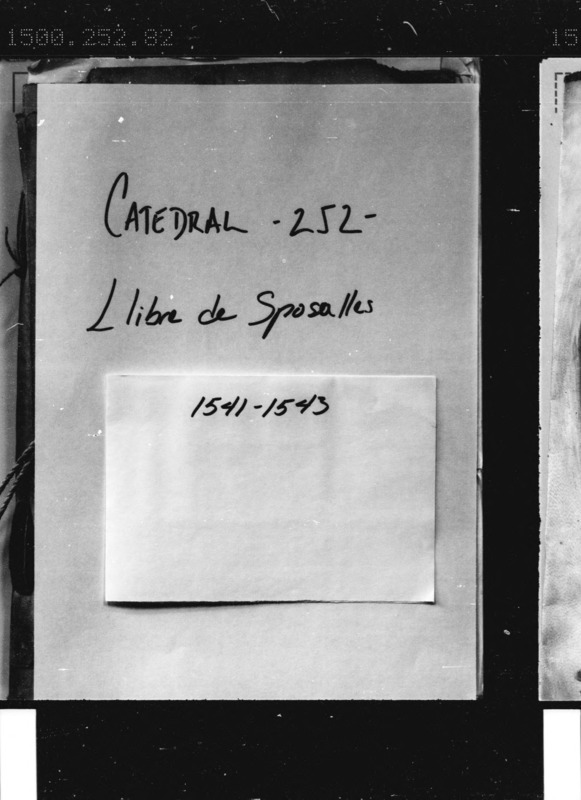 1500.252.82
15
CATEDRAL -252-
Llibre de Sposalles
1541-1543